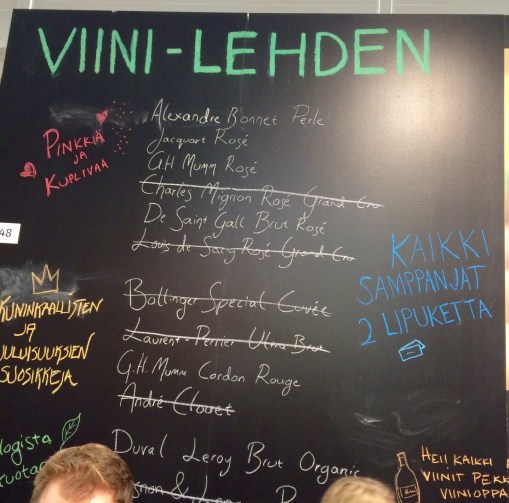 VIINI-LEHDEN
PINKKIÄ
JA
KUPLIVAA
Alexandre Bonnet Perle
Jacquart Rosé
GH Mumm Rosé
Charles Mignon Rosé Grand Cru
De Saint Gall Brut Rosé
Louis de Sacy Rosé Grand Cru
48
KUNINKAALLISTEN
JA
JULUISUUKSIEN
SUOSIKKEJA
Bollinger Special Cuvée
Laurent-Perrier Ultra Brut
G.H. Mumm Cordon Rouge
André Clouet
KAIKKI
SAMPPANJAT
2 LIPUKETTA
Duval Leroy Brut Organic
HEI! KAIKKI
VIINIT PEKK
VIINIOPPA